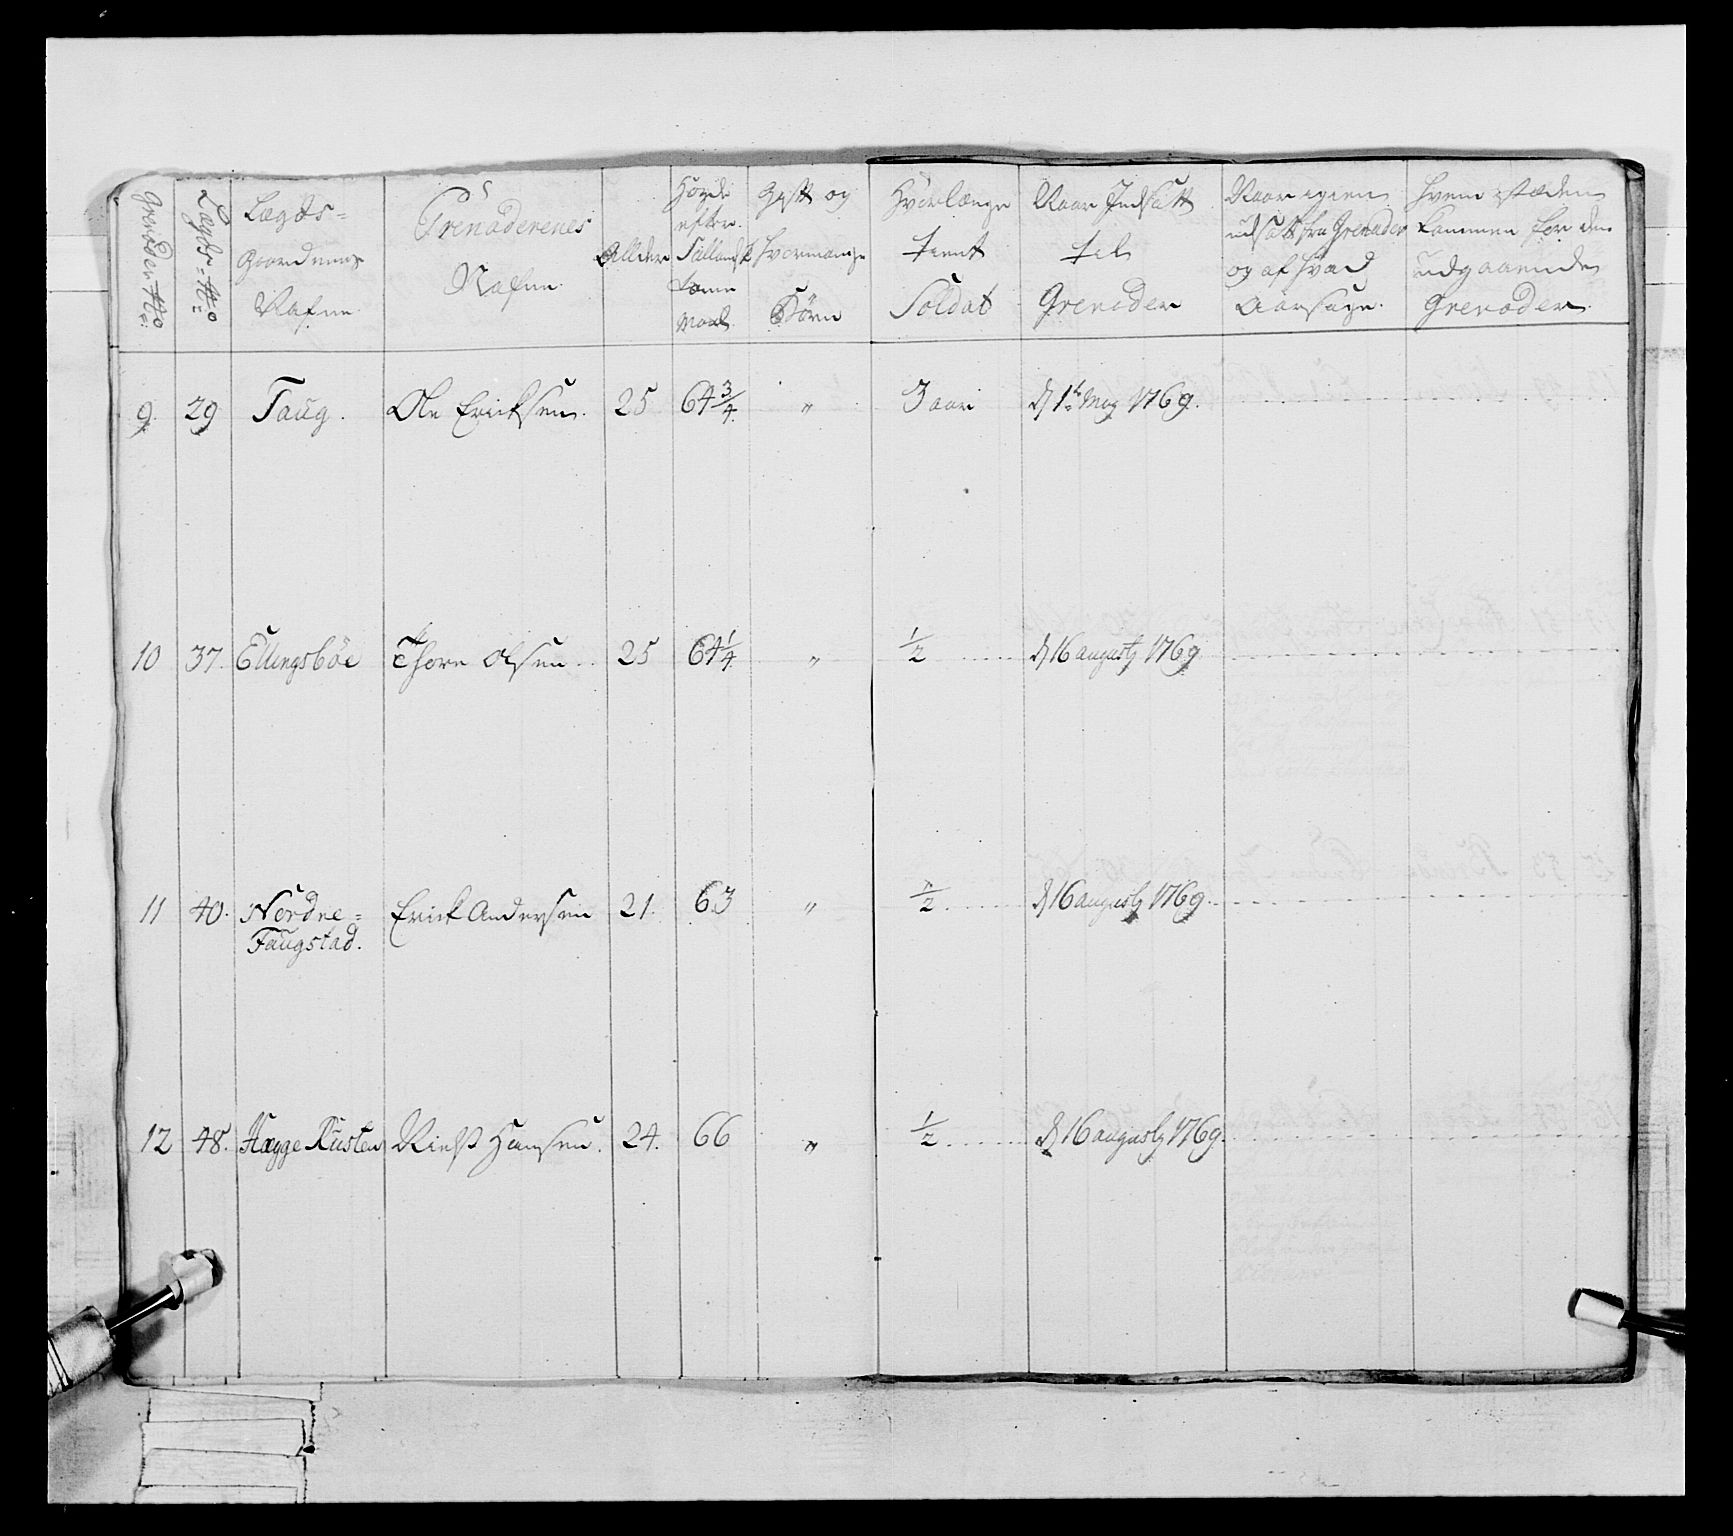 Grenader No
Lægds No
Lægds-
Gaardenes
Nafne
Grenaderenes
Nafne.
Allder
Høyde
efter
Siællandsk
tomme
Maal
Gift og
hvormange
Børn
Hvorlænge
tient
Soldat
Naar Indsatt
til
Grenader
Naar igien
udsatt fra Grenader
og af hvad
Aarsage.
Hvem i stæden
kommen for den
udgaaende
Grenader.
9. 29 Faug. Ole Ericksen. 25 64 3/4 " 3 aar d 1te May 1769.
10 37. Ellingsbøe Thore Olsen 25 64 1/4 " 1/2 d 16 augusty 1769
11 40. Nordre= Erick Andersen 21. 63 " 1/2 d 16 augusty 1769.
Faugstad.
12 48. Hægge Kusten Hansen. 24. 66 " 1/2 d 16 augusty 1769.